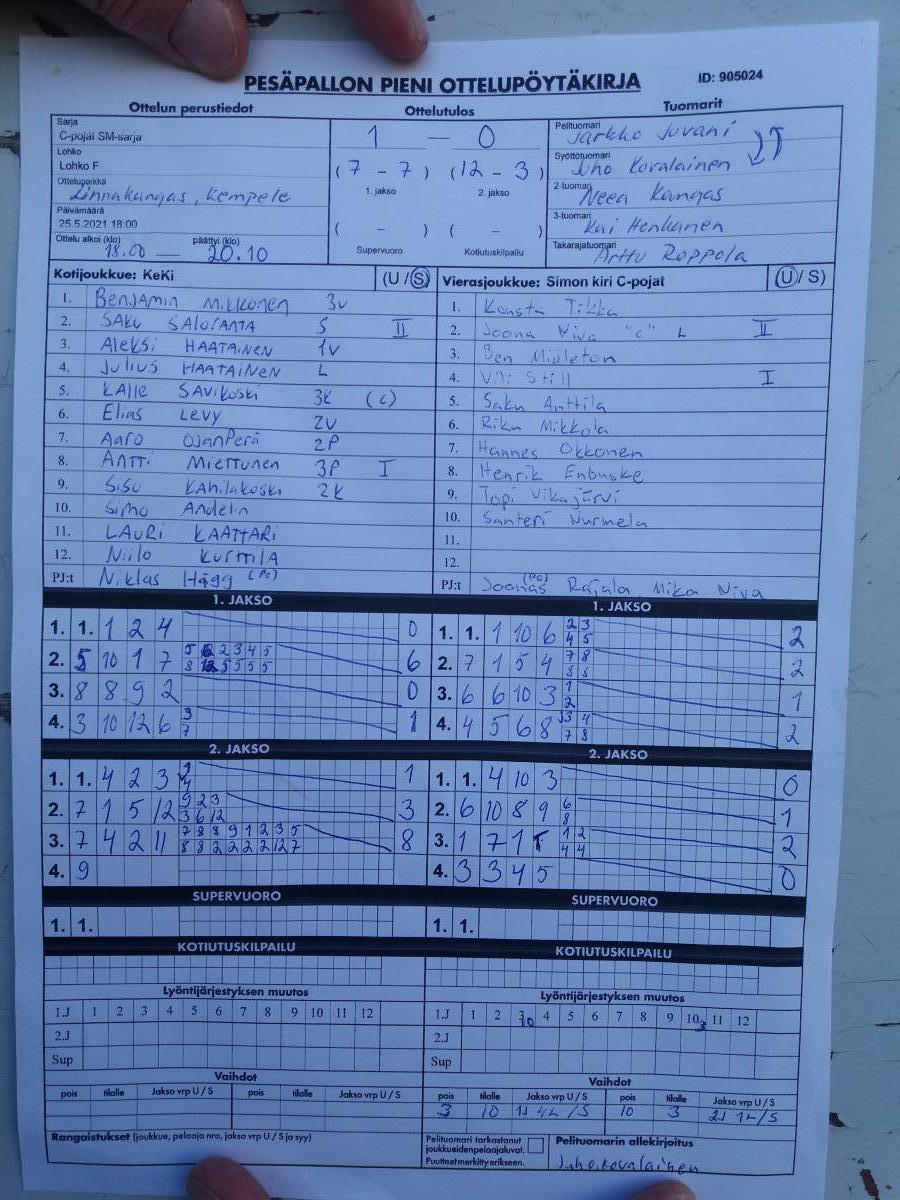 PESÄPALLON PIENI OTTELUPÖYTÄKIRJA ID: 905024
Ottelun perustiedot Ottelutulos Tuomarit
Sarja
C-pojat SM-sarja
Lohko
Lohko F
Ottelupaikka
Linnakangas, Kempele
Päivämäärä
25.5.2021 18:00
Ottelu alkoi (klo) päättyi (klo)
18.00 — 20.10
1 — 0
(7 - 7) (12 - 3)
1. jakso 2. jakso
( - ) ( - )
Supervuoro Kotiutuskilpailu
Pelituomari Jarkko Juvani
Syöttötuomari Juho Kovalainen
2-tuomari Neea Kangas
3-tuomari Kai Henkanen
Takarajatuomari Arttu Roppola
Kotijoukkue: KeKi (U / S)
1. BENJAMIN MIKKONEN 3V
2. SAKU SALORANTA S II
3. Aleksi HAATAINEN 1V
4. Julius HAATAINEN L
5. KALLE SAVIKOSKI 3K (C)
6. Elias LEVY 2V
7. Aaro OJANPERÄ 2P
8. ANTTI MIETTUNEN 3P I
9. SISU KAHILAKOSKI 2K
10. Simo Andelin
11. LAURI KAATTARI
12. Niilo KURTTILA
PJ:t Niklas Hägg (PJ)
Vierasjoukkue: Simon kiri C-pojat (U / S)
1. Konsta Tikka
2. Joona Niva "C" L II
3. Ben Midleton
4. Vili Still I
5. Saku Anttila
6. Riku Mikkola
7. Hannes Okkonen
8. Henrik Enbuske
9. Topi Vikajärvi
10. Santeri Nurmela
11.
12.
PJ:t Joonas (PJ) Rajala Mika Niva
1. JAKSO
1. 1. 1 2 4 0
2. 5 10 1 7 6
3. 8 8 9 2 0
4. 3 10 12 6 3 7 1
1. JAKSO
1. 1. 1 10 6 2 3 2
4 5
2. 7 1 5 4 7 8 2
8 8
3. 6 6 10 3 1 1
2
4. 4 5 6 8 3 4 2
7 8
2. JAKSO
1. 1. 4 2 3 1
2. 7 1 5 12 9 2 3 3
3 6 12
3. 7 4 2 11 7 8 8 9 1 2 3 5 8
8 8 2 2 2 2 12 7
4. 9
2. JAKSO
1. 1. 4 10 3 0
2. 6 10 8 9 6 1
8
3. 1 7 1 1 2 2
4 4
4. 3 3 4 5 0
SUPERVUORO
1. 1.
SUPERVUORO
1. 1.
KOTIUTUSKILPAILU
KOTIUTUSKILPAILU
Lyöntijärjestyksen muutos
1.J 1 2 3 4 5 6 7 8 9 10 11 12
2.J
Sup
Lyöntijärjestyksen muutos
1.J 1 2 3 10 4 5 6 7 8 9 10 3 11 12
2.J
Sup
Vaihdot
pois tilalle Jakso vrp U / S pois tilalle Jakso vrp U / S
Vaihdot
pois tilalle Jakso vrp U / S pois tilalle Jakso vrp U / S
3 10 1J 4L /S 10 3 2J 1L/S
Rangaistukset (joukkue, pelaaja nro, jakso vrp U / S ja syy)
Pelituomari tarkastanut
joukkueiden pelaajaluvat.
Puutteet merkitty erikseen.
Pelituomarin allekirjoitus
Juho Kovalainen